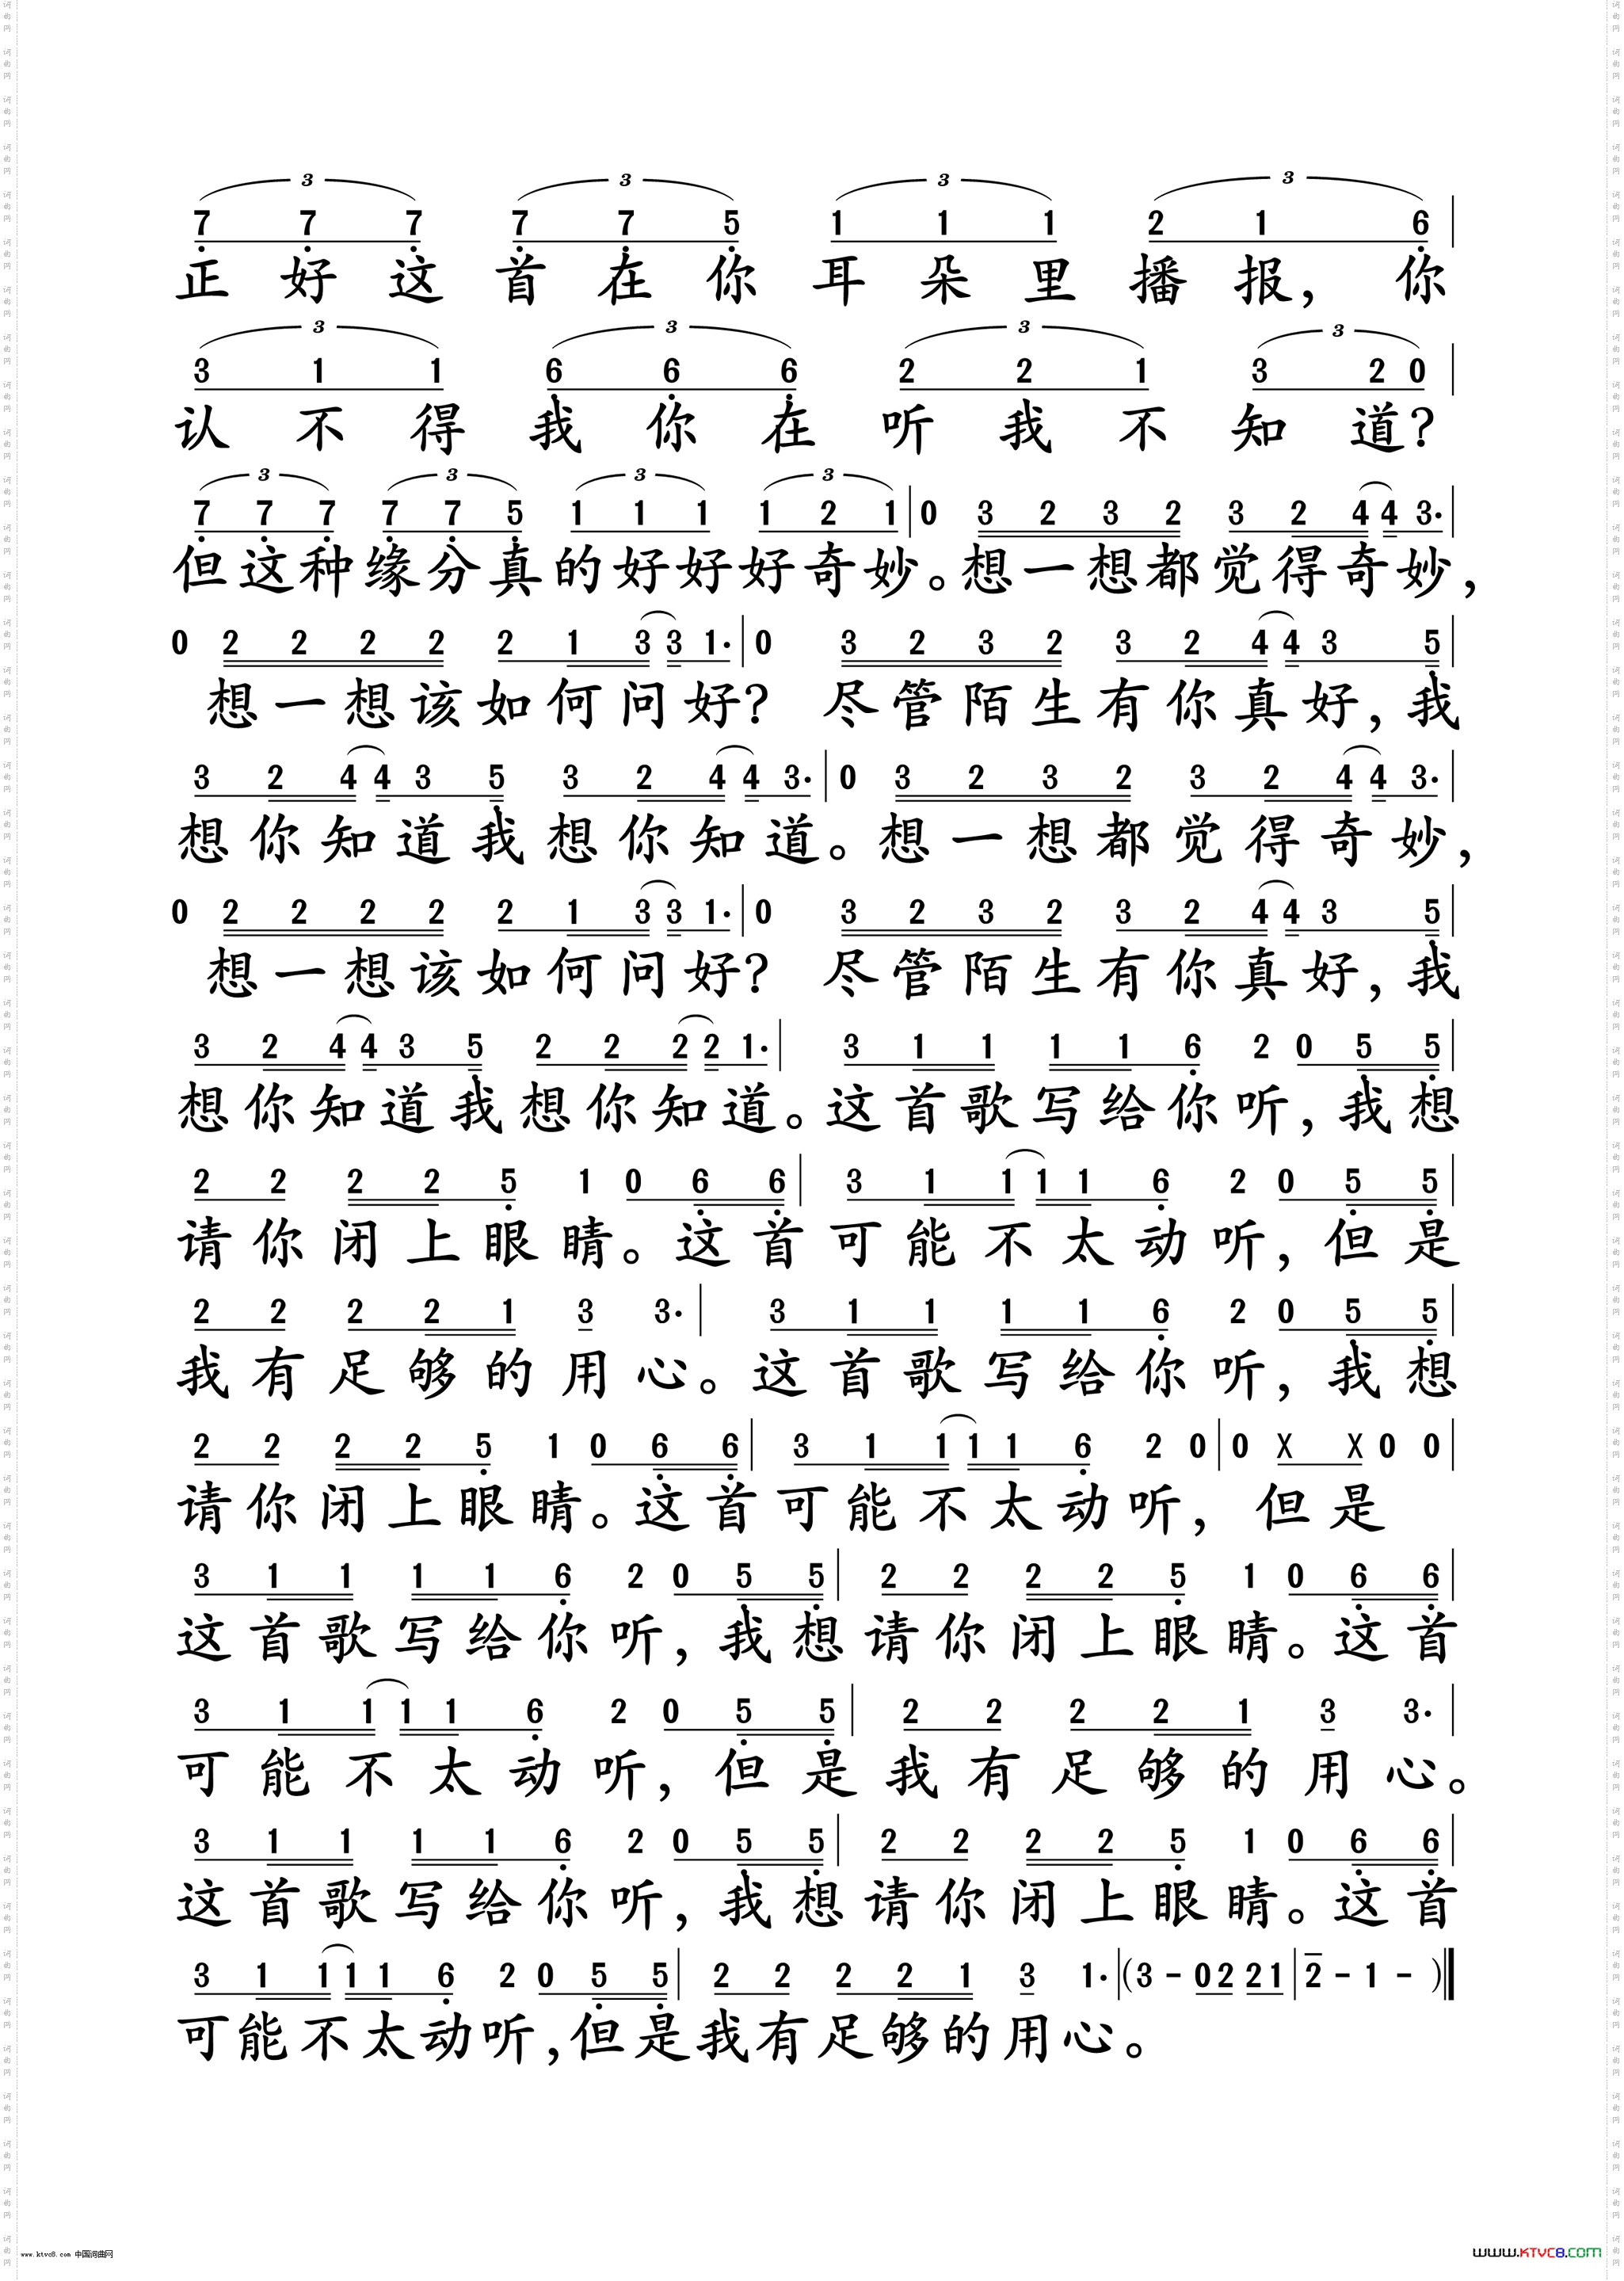 3 3 3 3
7 7 7 7 7 5 1 1 1 2 1 6
正好这首在你耳朵里播报，你
3 3 3 3
3 1 1 6 6 6 2 2 1 3 2 0
认不得我你在听我不知道？
3 3 3 3
7 7 7 7 7 5 1 1 1 1 2 1 | 0 3 2 3 2 3 2 4 4 3· |
但这种缘分真的好好好奇妙。想一想都觉得奇妙，
0 2 2 2 2 2 1 3 3 1· | 0 3 2 3 2 3 2 4 4 3 5 |
想一想该如何问好？ 尽管陌生有你真好，我
3 2 4 4 3 5 3 2 4 4 3· | 0 3 2 3 2 3 2 4 4 3· |
想你知道我想你知道。想一想都觉得奇妙，
0 2 2 2 2 2 1 3 3 1· | 0 3 2 3 2 3 2 4 4 3 5 |
想一想该如何问好？ 尽管陌生有你真好，我
3 2 4 4 3 5 2 2 2 2 1· | 3 1 1 1 1 6 2 0 5 5 |
想你知道我想你知道。这首歌写给你听，我想
2 2 2 2 5 1 0 6 6 | 3 1 1 1 1 6 2 0 5 5 |
请你闭上眼睛。这首可能不太动听，但是
2 2 2 2 1 3 3· | 3 1 1 1 1 6 2 0 5 5 |
我有足够的用心。这首歌写给你听，我想
2 2 2 2 5 1 0 6 6 | 3 1 1 1 1 6 2 0 | 0 X X 0 0 |
请你闭上眼睛。这首可能不太动听，但是
3 1 1 1 1 6 2 0 5 5 | 2 2 2 2 5 1 0 6 6 |
这首歌写给你听，我想请你闭上眼睛。这首
3 1 1 1 1 6 2 0 5 5 | 2 2 2 2 1 3 3· |
可能不太动听，但是我有足够的用心。
3 1 1 1 1 6 2 0 5 5 | 2 2 2 2 5 1 0 6 6 |
这首歌写给你听，我想请你闭上眼睛。这首
3 1 1 1 1 6 2 0 5 5 | 2 2 2 2 1 3 1· | (3 - 0 2 2 1 | 2 - 1 - )
可能不太动听，但是我有足够的用心。
www.ktvc8.com 中国词曲网
WWW.KTVC8.COM